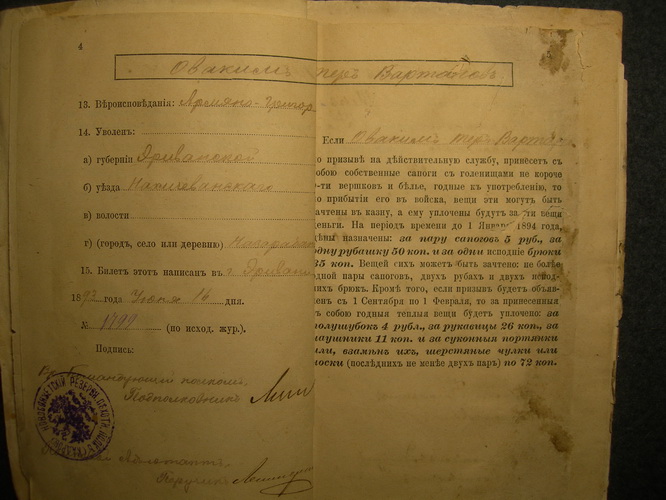 4
Овакимъ теръ Вартановъ
13. Вѣроисповѣданія: Армяно-Григор
14. Уволенъ:
а) губерніи Эриванской
б) уѣзда Нахичеванскаго
в) волости
г) (городъ, село или деревню)
15. Билетъ этотъ написанъ въ г. Эривани
1892 года Іюня 16 дня.
№ 1799 (по исход. жур.).
Подпись:
Командующій полкомъ
Подполковникъ
Адъютантъ
Поручикъ
Если Овакимъ теръ Варта
о призывѣ на дѣйствительную службу, принесетъ съ
обою собственные сапоги съ голенищами не короче
-ти вершковъ и бѣлье, годные къ употребленію, то
о прибытіи его въ войска, вещи эти могутъ быть
ачтены въ казну, а ему уплочены будутъ за эти вещи
еньги. На періодъ времени до 1 Января 1894 года,
ѣны назначены: за пару сапоговъ 5 руб., за
одну рубашку 50 коп. и за одни исподніе брюки
35 коп. Вещей сихъ можетъ быть зачтено: не болѣе
одной пары сапоговъ, двухъ рубахъ и двухъ исход-
ихъ брюкъ. Кромѣ того, если призывъ будетъ объяв-
енъ съ 1 Сентября по 1 Февраля, то за принесенныя
ъ собою годныя теплыя вещи будетъ уплочено: за
полушубокъ 4 рубл., за рукавицы 26 коп., за
аушники 11 коп. и за суконныя портянки
или, взамѣнъ ихъ, шерстяные чулки или
носки (послѣднихъ не менѣе двухъ паръ) по 72 коп.